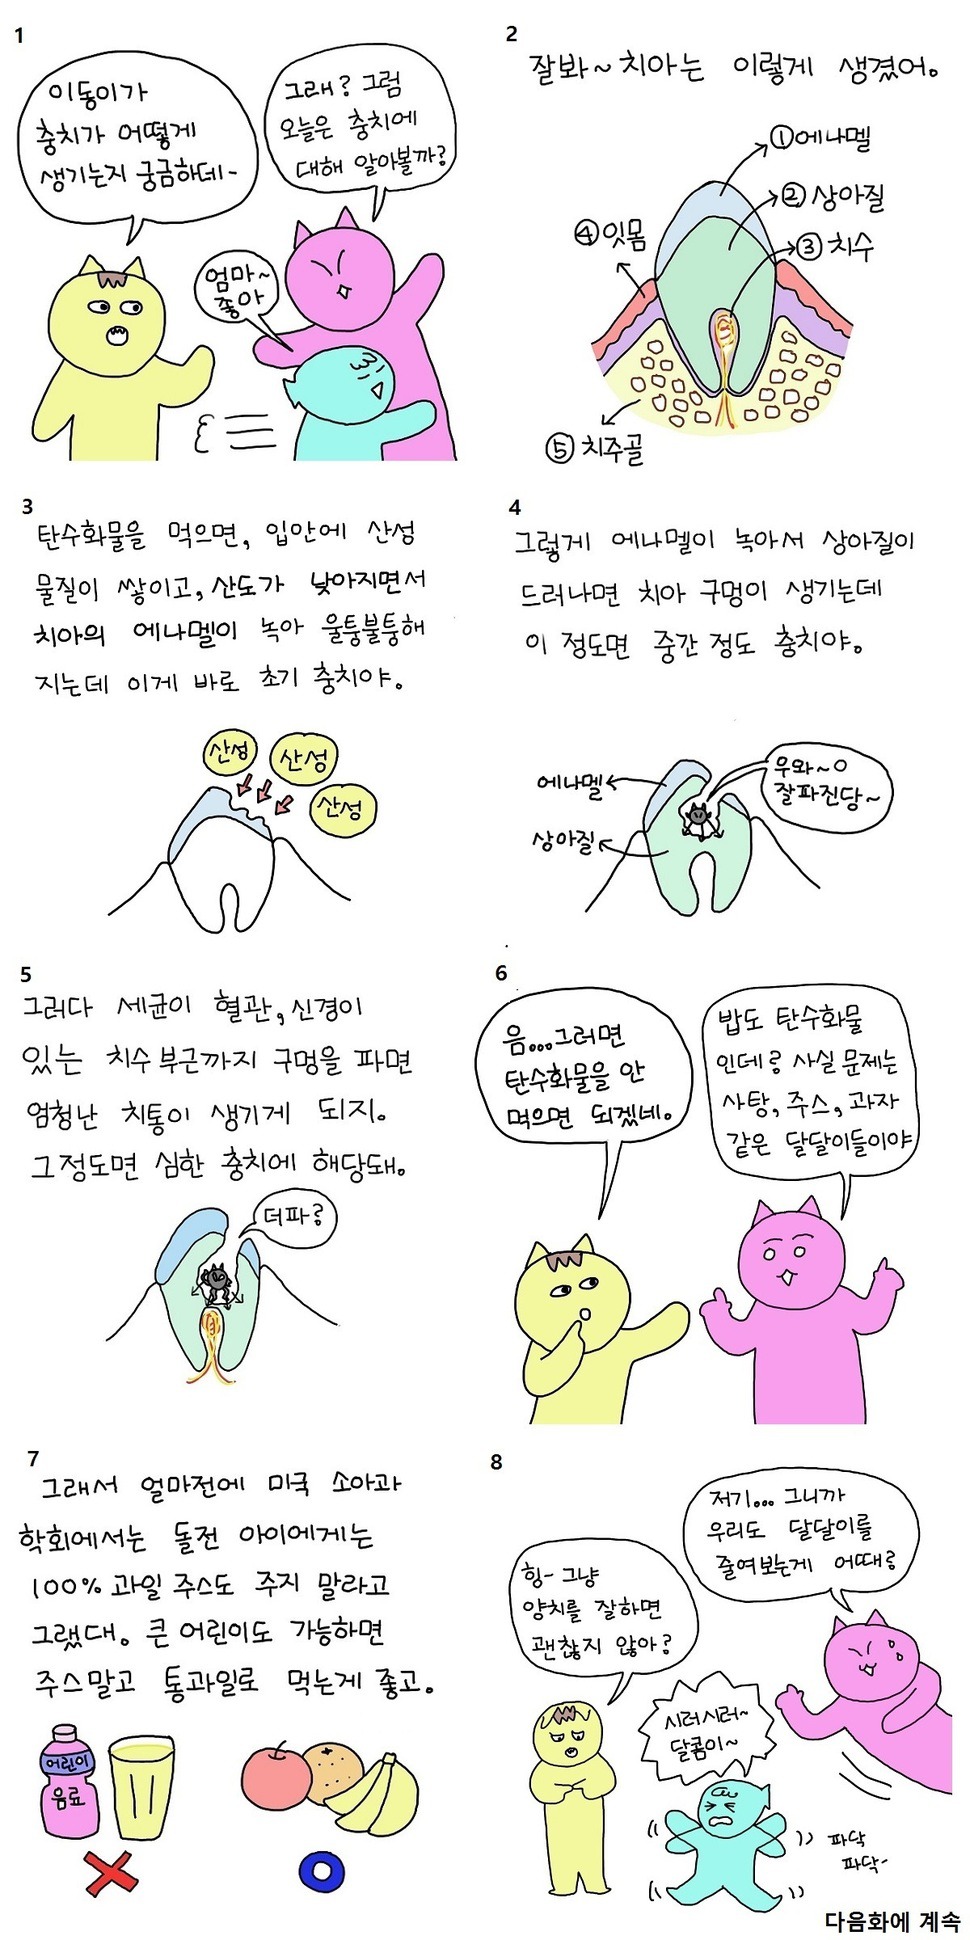 1
이동이가
충치가 어떻게
생기는지 궁금하데~
그래? 그럼
오늘은 충치에
대해 알아볼까?
엄마~
좋아
2
잘봐~ 치아는 이렇게 생겼어.
①에나멜
②상아질
③치수
④잇몸
⑤치주골
3
탄수화물을 먹으면, 입안에 산성
물질이 쌓이고, 산도가 낮아지면서
치아의 에나멜이 녹아 울퉁불퉁해
지는데 이게 바로 초기 충치야.
산성
산성
산성
4
그렇게 에나멜이 녹아서 상아질이
드러나면 치아 구멍이 생기는데
이 정도면 중간 정도 충치야.
에나멜
상아질
우와~
잘파진당~
5
그러다 세균이 혈관, 신경이
있는 치수 부근까지 구멍을 파면
엄청난 치통이 생기게 되지.
그정도면 심한 충치에 해당돼.
더파?
6
음...그러면
탄수화물을 안
먹으면 되겠네.
밥도 탄수화물
인데? 사실 문제는
사탕, 주스, 과자
같은 달달이들이야
7
그래서 얼마전에 미국 소아과
학회에서는 돌전 아이에게는
100% 과일 주스도 주지 말라고
그랬대. 큰 어린이도 가능하면
주스말고 통과일로 먹는게 좋고.
어린이
음료
8
저기... 그니까
우리도 달달이를
줄여보는게 어때?
힝~ 그냥
양치를 잘하면
괜찮지 않아?
시러시러~
달콤이~
파닥
파닥~
다음화에 계속